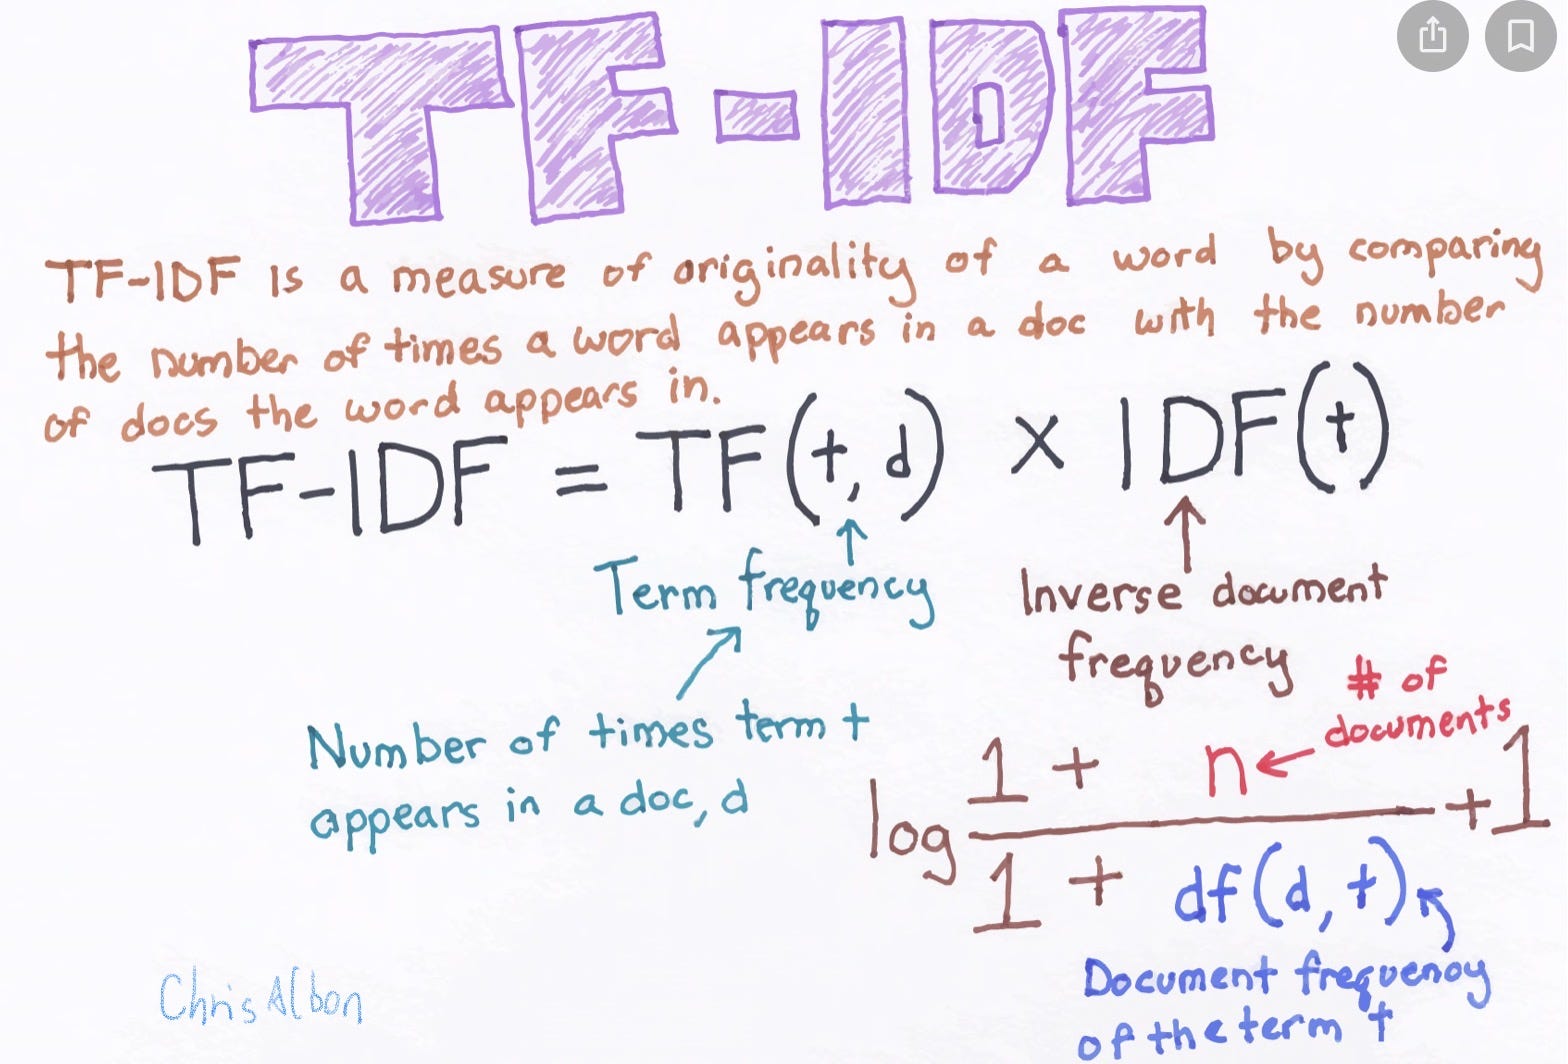 TF-IDF
TF-IDF is a measure of originality of a word by comparing
the number of times a word appears in a doc with the number
of docs the word appears in.
TF-IDF = TF(t, d) × IDF(t)
Term frequency
Number of times term t
appears in a doc, d
Inverse document
frequency
# of
documents
log (1 + n) / (1 + df(d, t)) + 1
Document frequency
of the term t
Chris Albon